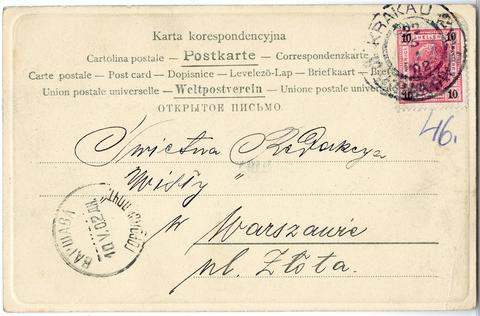 Karta korespondencyjna
Cartolina postale — Postkarte — Correspondenzkarte
Carte postale — Post card — Dopisnice — Levelező-Lap — Briefkaart — Bre
Union postale universelle — Weltpostverein — Unione postale univer
ОТКРЫТОЕ ПИСЬМО.
KRAKAU
10 HELLER 10
10 10
46.
Świetna Redakcya
„Wisły”
w Warszawie
pl. Złota.
ВАРШАВА
10.V.02